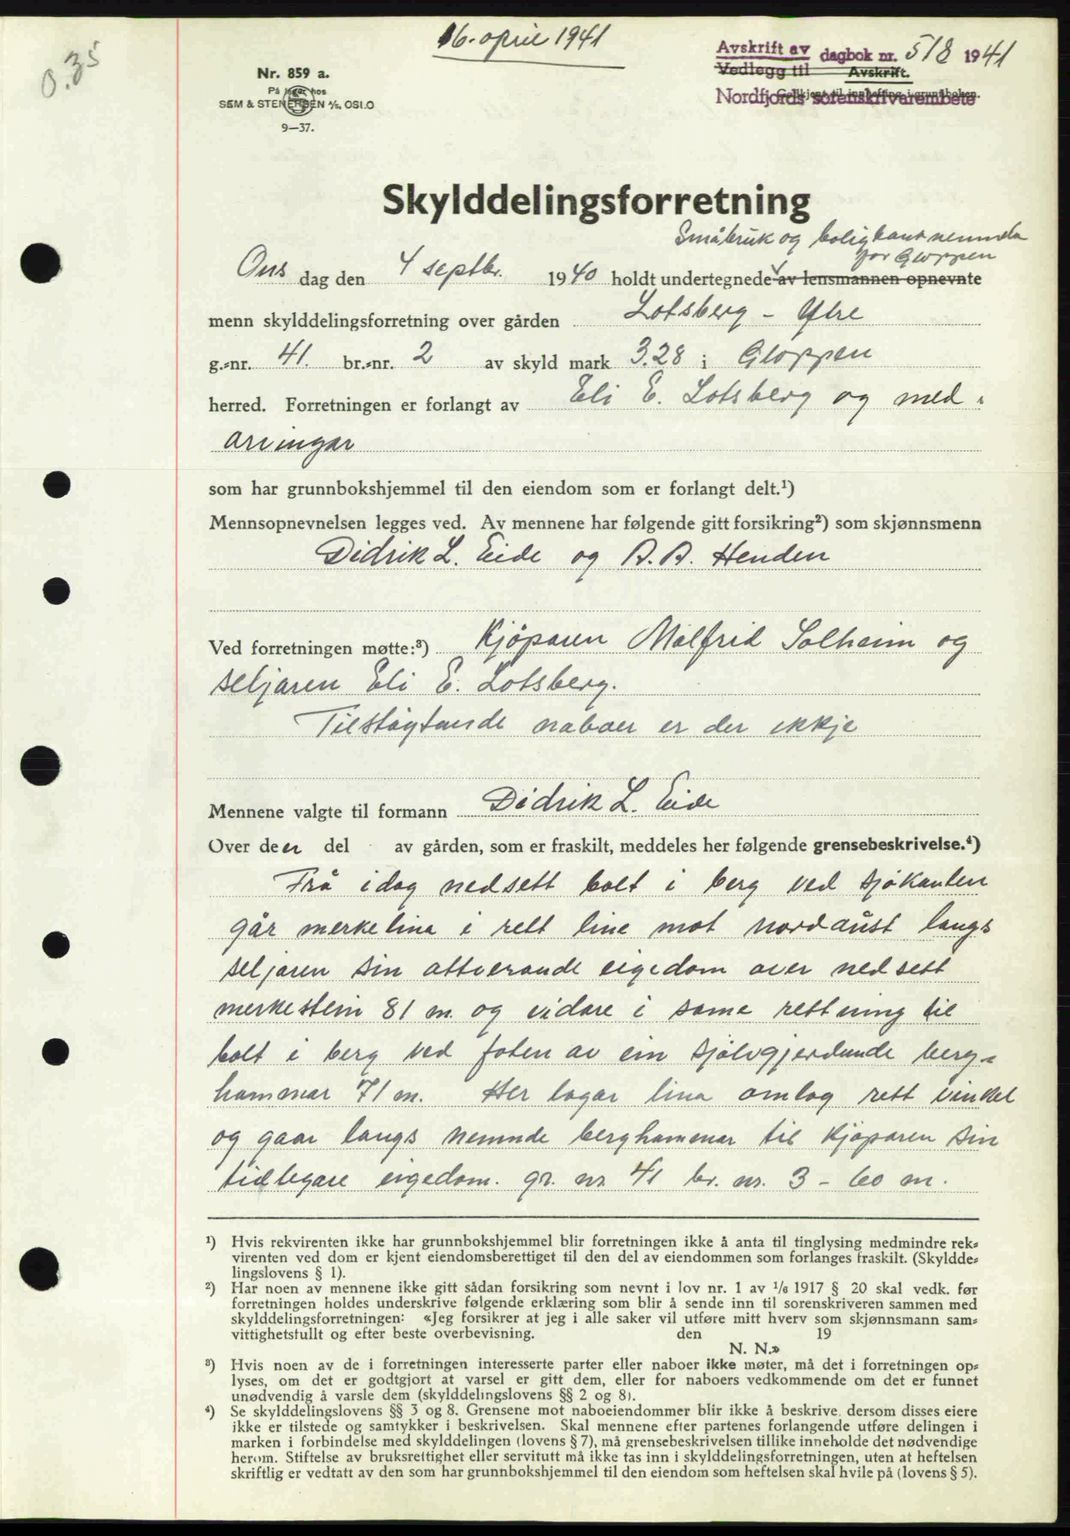 0.35
16. april 1941
Avskrift av dagbok nr. 518 1941
Vedlegg til Avskrift.
Nordfjords sorenskrivarembete
Nr. 859 a.
På lager hos
SEM & STENERSEN A/S, OSLO
9—37.
Skylddelingsforretning
Småbruk og boligbank nemnda
for Gloppen
Ons dag den 4 septbr. 1940 holdt undertegnede av lensmannen opnevnte
menn skylddelingsforretning over gården Lotsberg - Ytre
g.-nr. 41. br.-nr. 2 av skyld mark 3.28 i Gloppen
herred. Forretningen er forlangt av Eli E. Lotsberg og med-
arvingar
som har grunnbokshjemmel til den eiendom som er forlangt delt.¹)
Mennsopnevnelsen legges ved. Av mennene har følgende gitt forsikring²) som skjønnsmenn
Didrik L. Eide og A. A. Henden
Ved forretningen møtte:³) Kjöparen Målfrid Solheim og
seljaren Eli E. Lotsberg.
Tilstøytande naboer er der ikkje
Mennene valgte til formann Didrik L. Eide
Over deer del av gården, som er fraskilt, meddeles her følgende grensebeskrivelse.⁴)
Frå idag nedsett bolt i berg ved sjökanten
går merkelina i rett line mot nordaust langs
seljaren sin attverande eigedom over nedsett
merkestein 81 m. og vidare i same rettning til
bolt i berg ved foten av ein sjølvgjerdande berg-
hammar 71 m. Her lagar lina omlag rett vinkel
og gaar langs nemnde berghammar til Kjöparen sin
tidlegare eigedom. gr. nr 41 br. nr. 3 - 60 m.
¹) Hvis rekvirenten ikke har grunnbokshjemmel blir forretningen ikke å anta til tinglysing medmindre rek-
virenten ved dom er kjent eiendomsberettiget til den del av eiendommen som forlanges fraskilt. (Skyldde-
lingslovens § 1).
²) Har noen av mennene ikke gitt sådan forsikring som nevnt i lov nr. 1 av 1/6 1917 § 20 skal vedk. før
forretningen holdes underskrive følgende erklæring som blir å sende inn til sorenskriveren sammen med
skylddelingsforretningen: «Jeg forsikrer at jeg i alle saker vil utføre mitt hverv som skjønnsmann sam-
vittighetsfullt og efter beste overbevisning. den 19
N. N.»
³) Hvis noen av de i forretningen interesserte parter eller naboer ikke møter, må det i forretningen op-
lyses, om det er godtgjort at varsel er gitt dem, eller for naboers vedkommende om det er funnet
unødvendig å varsle dem (skylddelingslovens §§ 2 og 8).
⁴) Se skylddelingslovens §§ 3 og 8. Grensene mot naboeiendommer blir ikke å beskrive, dersom disses eiere
ikke er tilstede og samtykker i beskrivelsen. Skal mennene efter partenes forlangende utføre delingen i
marken i forbindelse med skylddelingen (lovens § 7), må grensebeskrivelsen tillike inneholde det nødvendige
herom. Stiftelse av bruksrettighet eller servitutt må ikke tas inn i skylddelingsforretningen, uten at heftelsen
skriftlig er vedtatt av den som har grunnbokshjemmel til den eiendom som heftelsen skal hvile på (lovens § 5).